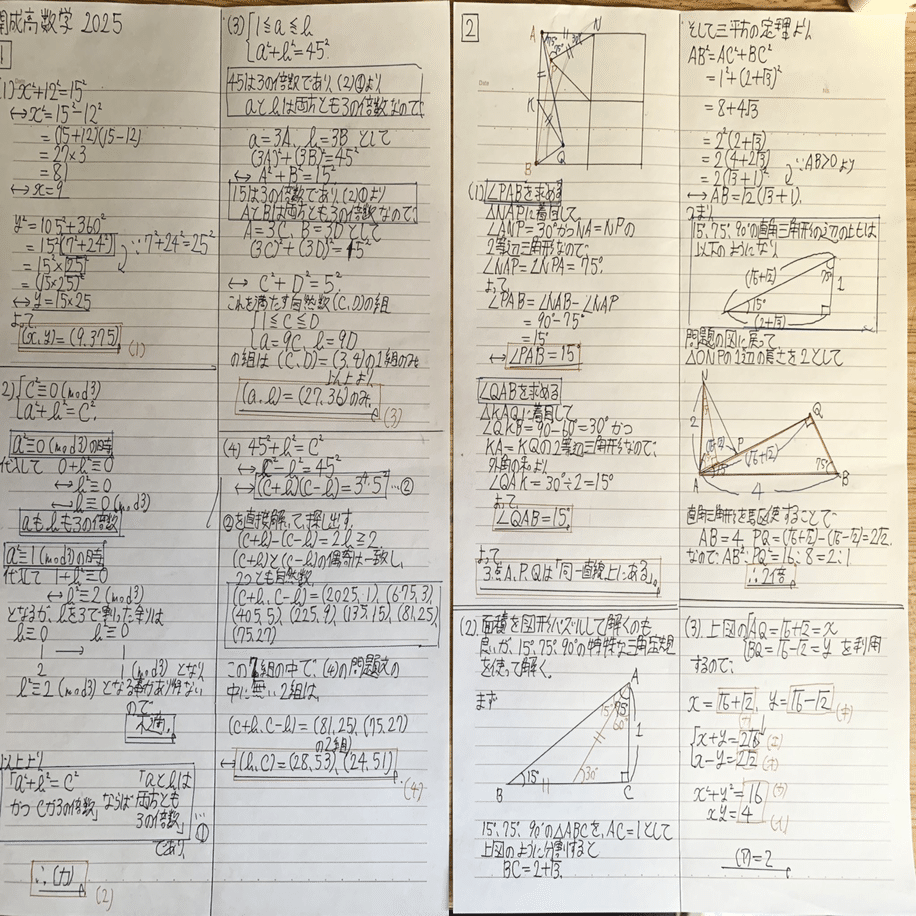 開成高数学 2025
1
(1) x²+12²=15²
↔ x²=15²-12²
=(15+12)(15-12)
=27×3
=81
↔ x=9
y²=105²+360²
=15²(7²+24²) ∵7²+24²=25²
=15²×25²
=(15×25)²
↔ y=15×25
よって
(x,y)=(9,375)
(1)
(2) { C²≡0 (mod3)
a²+b²=C²
a²≡0 (mod3)の時
代入して 0+b²≡0
↔ b²≡0
↔ b≡0 (mod3)
aもbも3の倍数
a²≡1 (mod3)の時
代入して 1+b²≡0
↔ b²≡2 (mod3)
となるが、bを3で割った余りは
b≡0 b²≡0
1 → 1
2 1 (mod3) となり
b²≡2 (mod3) となる事があり得ない
ので
不適。
以上より
「a²+b²=C²
かつCが3の倍数」ならば「aとbは両方とも3の倍数」…①
であり、
∴(カ)
(2)
(3) { 1≦a≦b
a²+b²=45²
45は3の倍数であり、(2)①より
aとbは両方とも3の倍数なので、
a=3A、b=3Bとして
(3A)²+(3B)²=45²
↔ A²+B²=15²
15は3の倍数であり、(2)①より
AとBは両方とも3の倍数なので、
A=3C、B=3Dとして
(3C)²+(3D)²=15²
↔ C²+D²=5²
これを満たす自然数(C,D)の組
{ 1≦C≦D
a=9C, b=9D
の組は (C,D)=(3,4)の1組のみ
以上より
(a,b)=(27,36)のみ。
(3)
(4) 45²+b²=C²
↔ C²-b²=45²
↔ (C+b)(C-b)=3⁴·5² …②
②を直接解いて、探し出す。
(C+b)-(C-b)=2b≧2
(C+b)と(C-b)の偶奇は一致し、
2つとも自然数
(C+b,C-b)=(2025,1)、(675,3)
(405,5)、(225,9)、(135,15)、(81,25)、
(75,27)
この7組の中で、(4)の問題文の
中に無い2組は、
(C+b,C-b)=(81,25)、(75,27)
の2組
↔ (b,C)=(28,53)、(24,51)
(4)
2
A
N
75°
75°
30°
K
B
Q
(1) ∠PABを求める
△NAPに着目して
∠ANP=30°かつNA=NPの
2等辺三角形なので
∠NAP=∠NPA=75°
よって
∠PAB=∠NAB-∠NAP
=90°-75°
=15°
↔ ∠PAB=15°
∠QABを求める
△KAQに着目して
∠QKB=90-60=30°かつ
KA=KQの2等辺三角形なので、
外角の和より
∠QAK=30°÷2=15°
よって
∠QAB=15°
よって
3点A,P,Qは「同一直線上にある」。
(2) 面積を図形パズルして解くのも
良いが、15°、75°、90°の特殊な三角定規
を使って解く。
まず
A
15°
75°
60°
1
15°
30°
B
C
15°、75°、90°の△ABCを、AC=1として
上図のように分割すると
BC=2+√3.
そして三平方の定理より
AB²=AC²+BC²
=1²+(2+√3)²
=8+4√3
=2²(2+√3)
=2(4+2√3)
=2(√3+1)² ∵AB>0より
↔ AB=√2(√3+1).
つまり
15、75、90°の直角三角形の辺の比は
以下のようになり
(√6+√2)
75°
1
15°
(2+√3)
問題の図に戻って
△ONPの1辺の長さを2として
N
2
P
Q
(√6+√2)
75°
A
4
B
直角三角形を駆使することで
AB=4、PQ=(√6+√2)-(√6-√2)=2√2.
なので、AB²:PQ²=16:8=2:1
∴2倍
(3) 上図の { AQ=√6+√2=x
BQ=√6-√2=y を利用
するので、
x=√6+√2, y=√6-√2
{ x+y=2√6
x-y=2√2
x²+y²=16
xy=4
(ア)=2